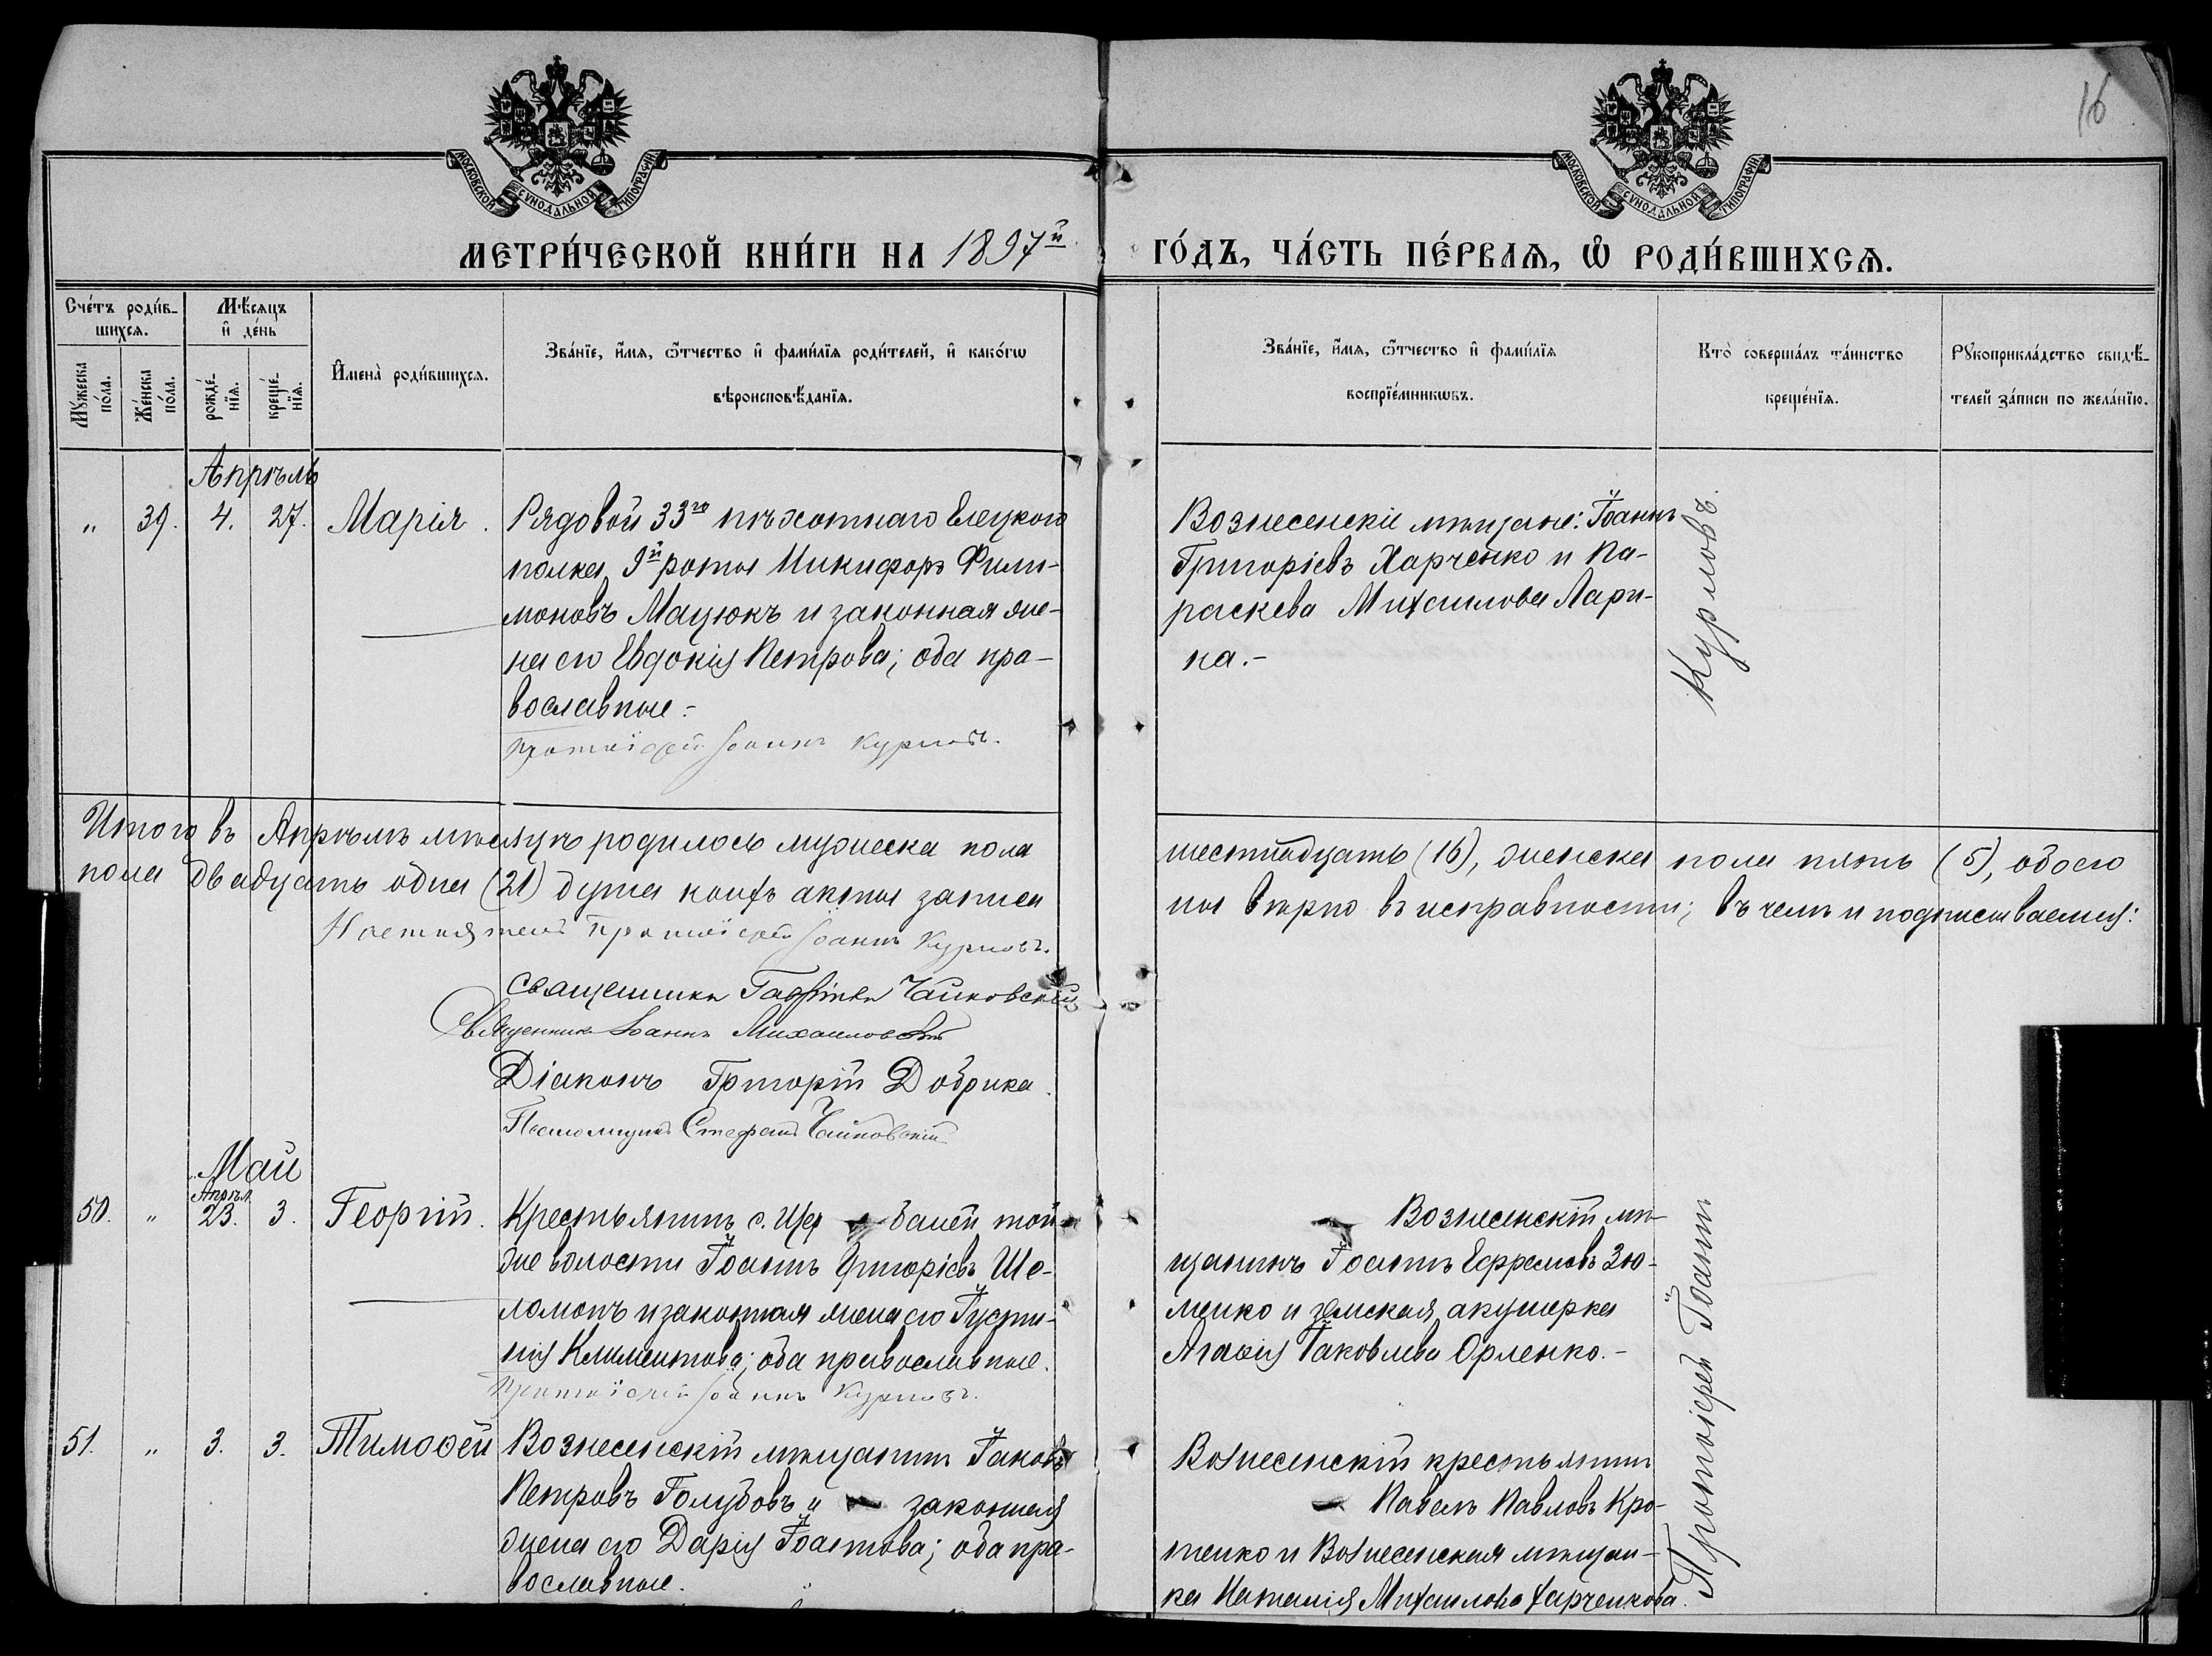 16
МОСКОВСКОЙ СУНОДАЛЬНОЙ ТИПОГРАФІИ
МОСКОВСКОЙ СУНОДАЛЬНОЙ ТИПОГРАФІИ
МЕТРИ́ЧЕСКОЙ КНИ́ГИ НА 1897й
ГО́ДЪ, ЧА́СТЬ ПЕ́РВАѦ, Ѡ҆ РОДИ́ВШИХСѦ.
Сче́тъ роди́в-
шихсѧ.
Му́жеска по́ла.
Же́нска по́ла.
Мѣ́сѧцъ
и҆ де́нь
рожде́-
нїѧ.
креще́-
нїѧ.
И҆мена̀ роди́вшихсѧ.
Зва́нїе, и҆́мѧ, ѻ҆́тчество и҆ фами́лїѧ роди́телей, и҆ како́гѡ
вѣроисповѣ́данїѧ.
Зва́нїе, и҆́мѧ, ѻ҆́тчество и҆ фами́лїѧ
воспрїе́мникѡвъ.
Кто̀ соверша́лъ та́инство
креще́нїѧ.
Рꙋкоприкла́дство свидѣ́-
телей за́писи по жела́нїю.
Апрѣль
" 39. 4. 27. Марія.
Рядовой 33го пѣхотнаго Елецкого
полка 9й роты Никифоръ Фили-
моновъ Мацюкъ и законная же-
на его Евдокія Петрова; оба пра-
вославные.-
Протоіерей Іоаннъ Курловъ.
Вознесенскіе мѣщане: Іоаннъ
Григоріевъ Харченко и Па-
раскева Михаилова Лари-
на.-
Курловъ.
Итого въ Апрѣлѣ мѣсяцѣ родилось мужеска пола шестнадцать (16), женска пола пять (5), обоего
пола двадцать одна (21) душа коихъ акты записа ны вѣрно въ исправности; въ чемъ и подписываемся:
Настоятель Протоіерей Іоаннъ Курловъ.
Священникъ Гавріилъ Чайковскій
Священникъ Іоаннъ Михаиловскій
Діаконъ Григорій Добрика.
Псаломщикъ Стефанъ Чайковскій
Май
Апрѣл.
50. " 23. 3. Георгій.
Крестьянинъ с. Ще баней той
же волости Іоаннъ Григоріевъ Ше-
ломонъ и законная жена его Іусти-
нія Климентова; оба православные.
Протоіерей Іоаннъ Курловъ.
Вознесенскій мѣ-
щанинъ Іоаннъ Ефремовъ Зю-
менко и земская акушерка
Агаѳія Іаковлева Орленко.-
51. " 3. 3. Тимоѳей
Вознесенскій мѣщанинъ Іаковъ
Петровъ Голубовъ и законная
жена его Дарія Іоаннова; оба пра-
вославные.
Вознесенскій крестьянинъ
Павелъ Павловъ Кро-
тенко и Вознесенская мѣщан-
ка Наталія Михаилова Харченкова.
Протоіерей Іоаннъ